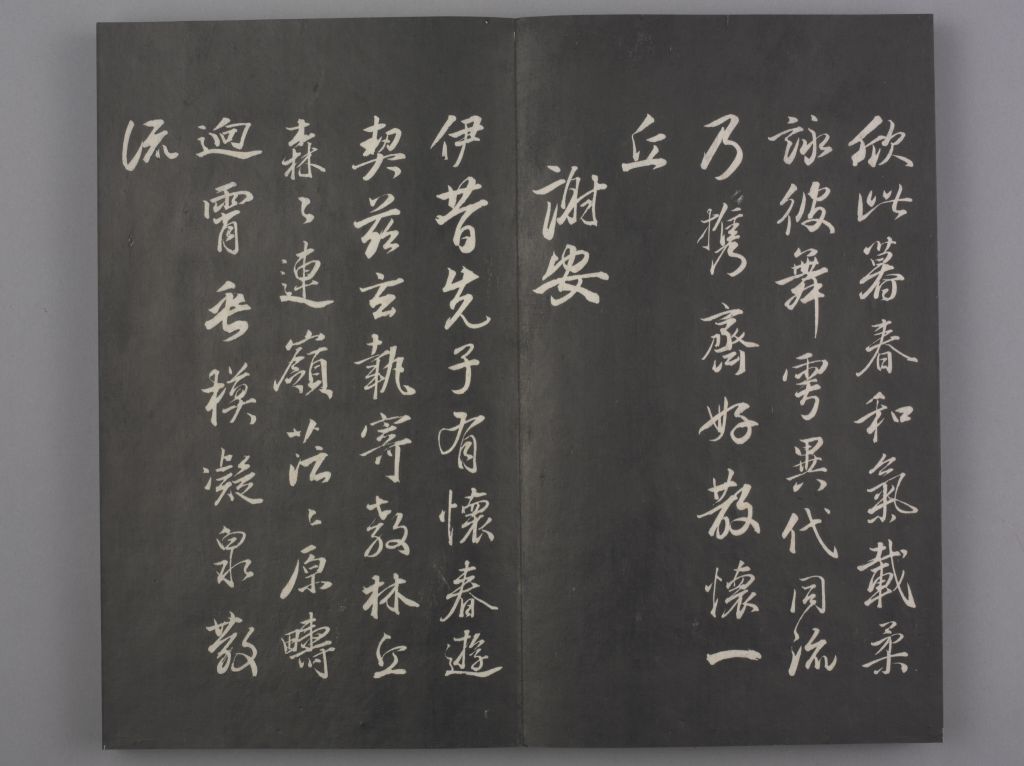 欣此暮春和氣載柔
詠彼舞雩異代同流
乃攜齊好散懷一
丘
謝安
伊昔先子有懷春遊
契茲言執寄敖林丘
森々連嶺茫々原疇
逈霄垂模凝泉散
流